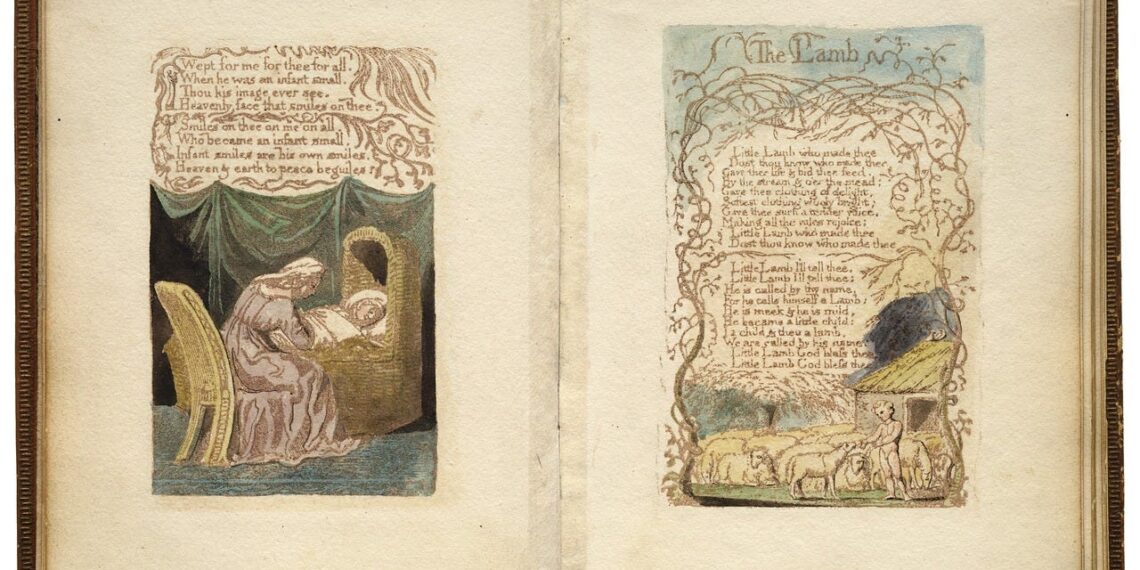 Wept for me for thee for all.
When he was an infant small.
Thou his image ever see.
Heavenly face that smiles on thee.
Smiles on thee on me on all,
Who became an infant small
Infant smiles are his own smiles,
Heaven & earth to peace beguiles.
The Lamb
Little Lamb who made thee
Dost thou know who made thee
Gave thee life & bid thee feed.
By the stream & o'er the mead;
Gave thee clothing of delight,
Softest clothing wooly bright;
Gave thee such a tender voice,
Making all the vales rejoice;
Little Lamb who made thee
Dost thou know who made thee
Little Lamb I'll tell thee,
Little Lamb I'll tell thee;
He is called by thy name,
For he calls himself a Lamb;
He is meek & he is mild,
He became a little child:
I a child & thou a lamb,
We are called by his name.
Little Lamb God bless thee.
Little Lamb God bless thee.